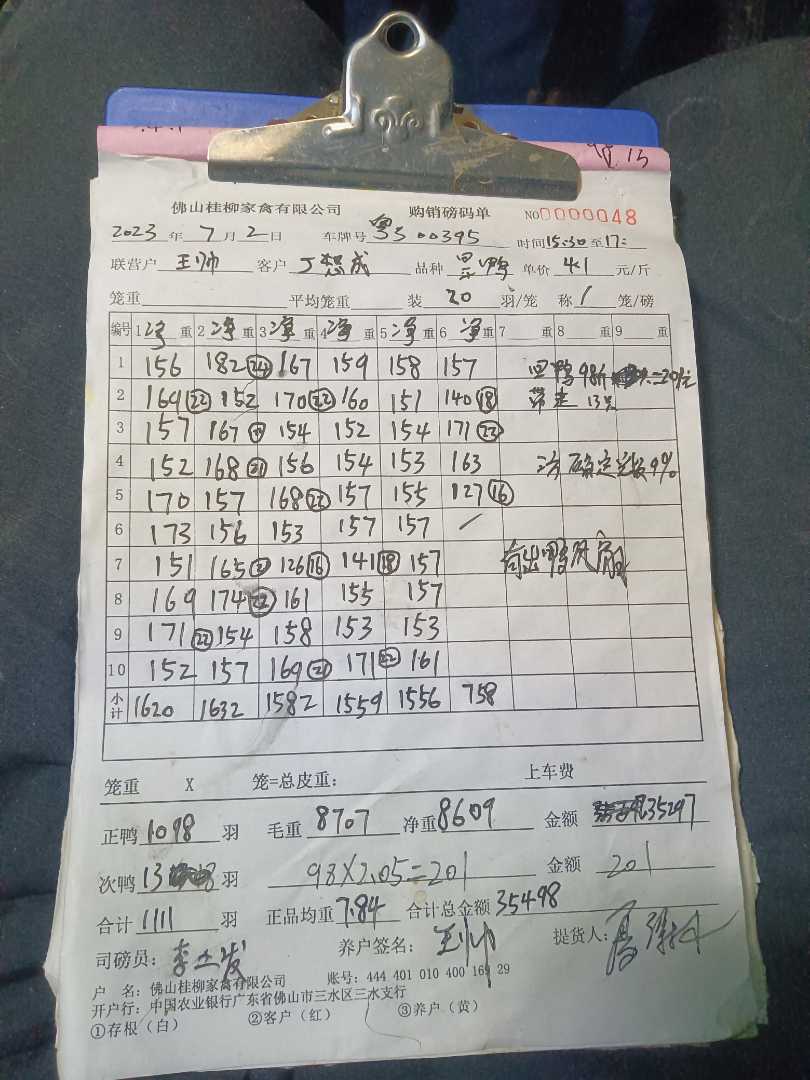 佛山桂柳家禽有限公司 购销磅码单 NO0000048
2023年7月2日 车牌号 00395 时间15:30至17:
联营户 王帅 客户 丁想成 品种 鸭 单价 4.1 元/斤
笼重 平均笼重 装 20 羽/笼 称 1 笼/磅
编号 1净重 2净重 3净重 4净重 5净重 6净重 7 重 8 重 9 重
1 156 182㉔ 167 159 158 157 鸭 98斤 =201元
2 169㉒ 152 170㉒ 160 151 140⑱ 带走 13只
3 157 167 154 152 154 171㉒
4 152 168㉑ 156 154 153 163 9%
5 170 157 168㉒ 157 155 127⑯
6 173 156 153 157 157 /
7 151 165㉑ 126⑯ 141⑱ 157 鸭
8 169 174㉒ 161 155 157
9 171㉒ 154 158 153 153
10 152 157 169㉑ 171㉒ 161
小计 1620 1632 1582 1559 1556 758
笼重 X 笼=总皮重: 上车费
正鸭 1098 羽 毛重 8707 净重 8609 金额 35297
次鸭 13 羽 98X2.05=201 金额 201
合计 1111 羽 正品均重 7.84 合计总金额 35498
司磅员: 李 发 养户签名: 王帅 提货人:
户 名: 佛山桂柳家禽有限公司 账号: 444 401 010 400 169 29
开户行: 中国农业银行广东省佛山市三水区三水支行
①存根（白） ②客户（红） ③养户（黄）